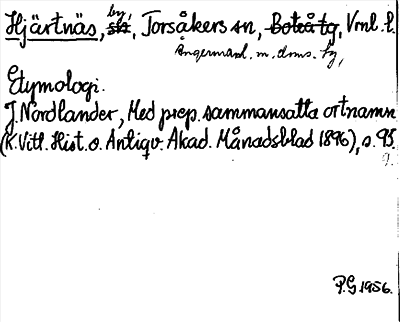 Hjärtnäs, by, Torsåkers sn, Boteå tg, Vrnl. l.
Ångermanl. m. doms. tg,
Etymologi.
J. Nordlander, Med prep. sammansatta ortnamn
(K. Vitt. Hist. o. Antiqv. Akad. Månadsblad 1896), s. 95.
P.G. 1956.